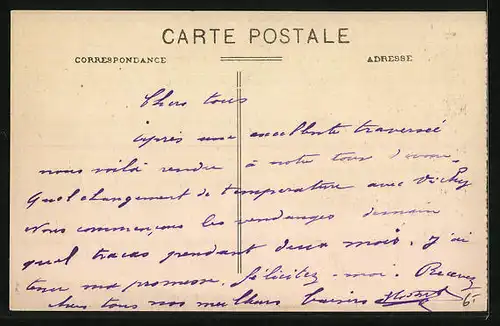 CARTE POSTALE
CORRESPONDANCE
ADRESSE
Chers tous
après une excellente traversée
nous voilà rendu à notre tour
Quel changement de température avec Vichy
Nous commençons les vendanges demain
quel tracas pendant deux mois. J'ai
tenu ma promesse. Félicitez-moi. Recevez
chers tous nos meilleurs baisers